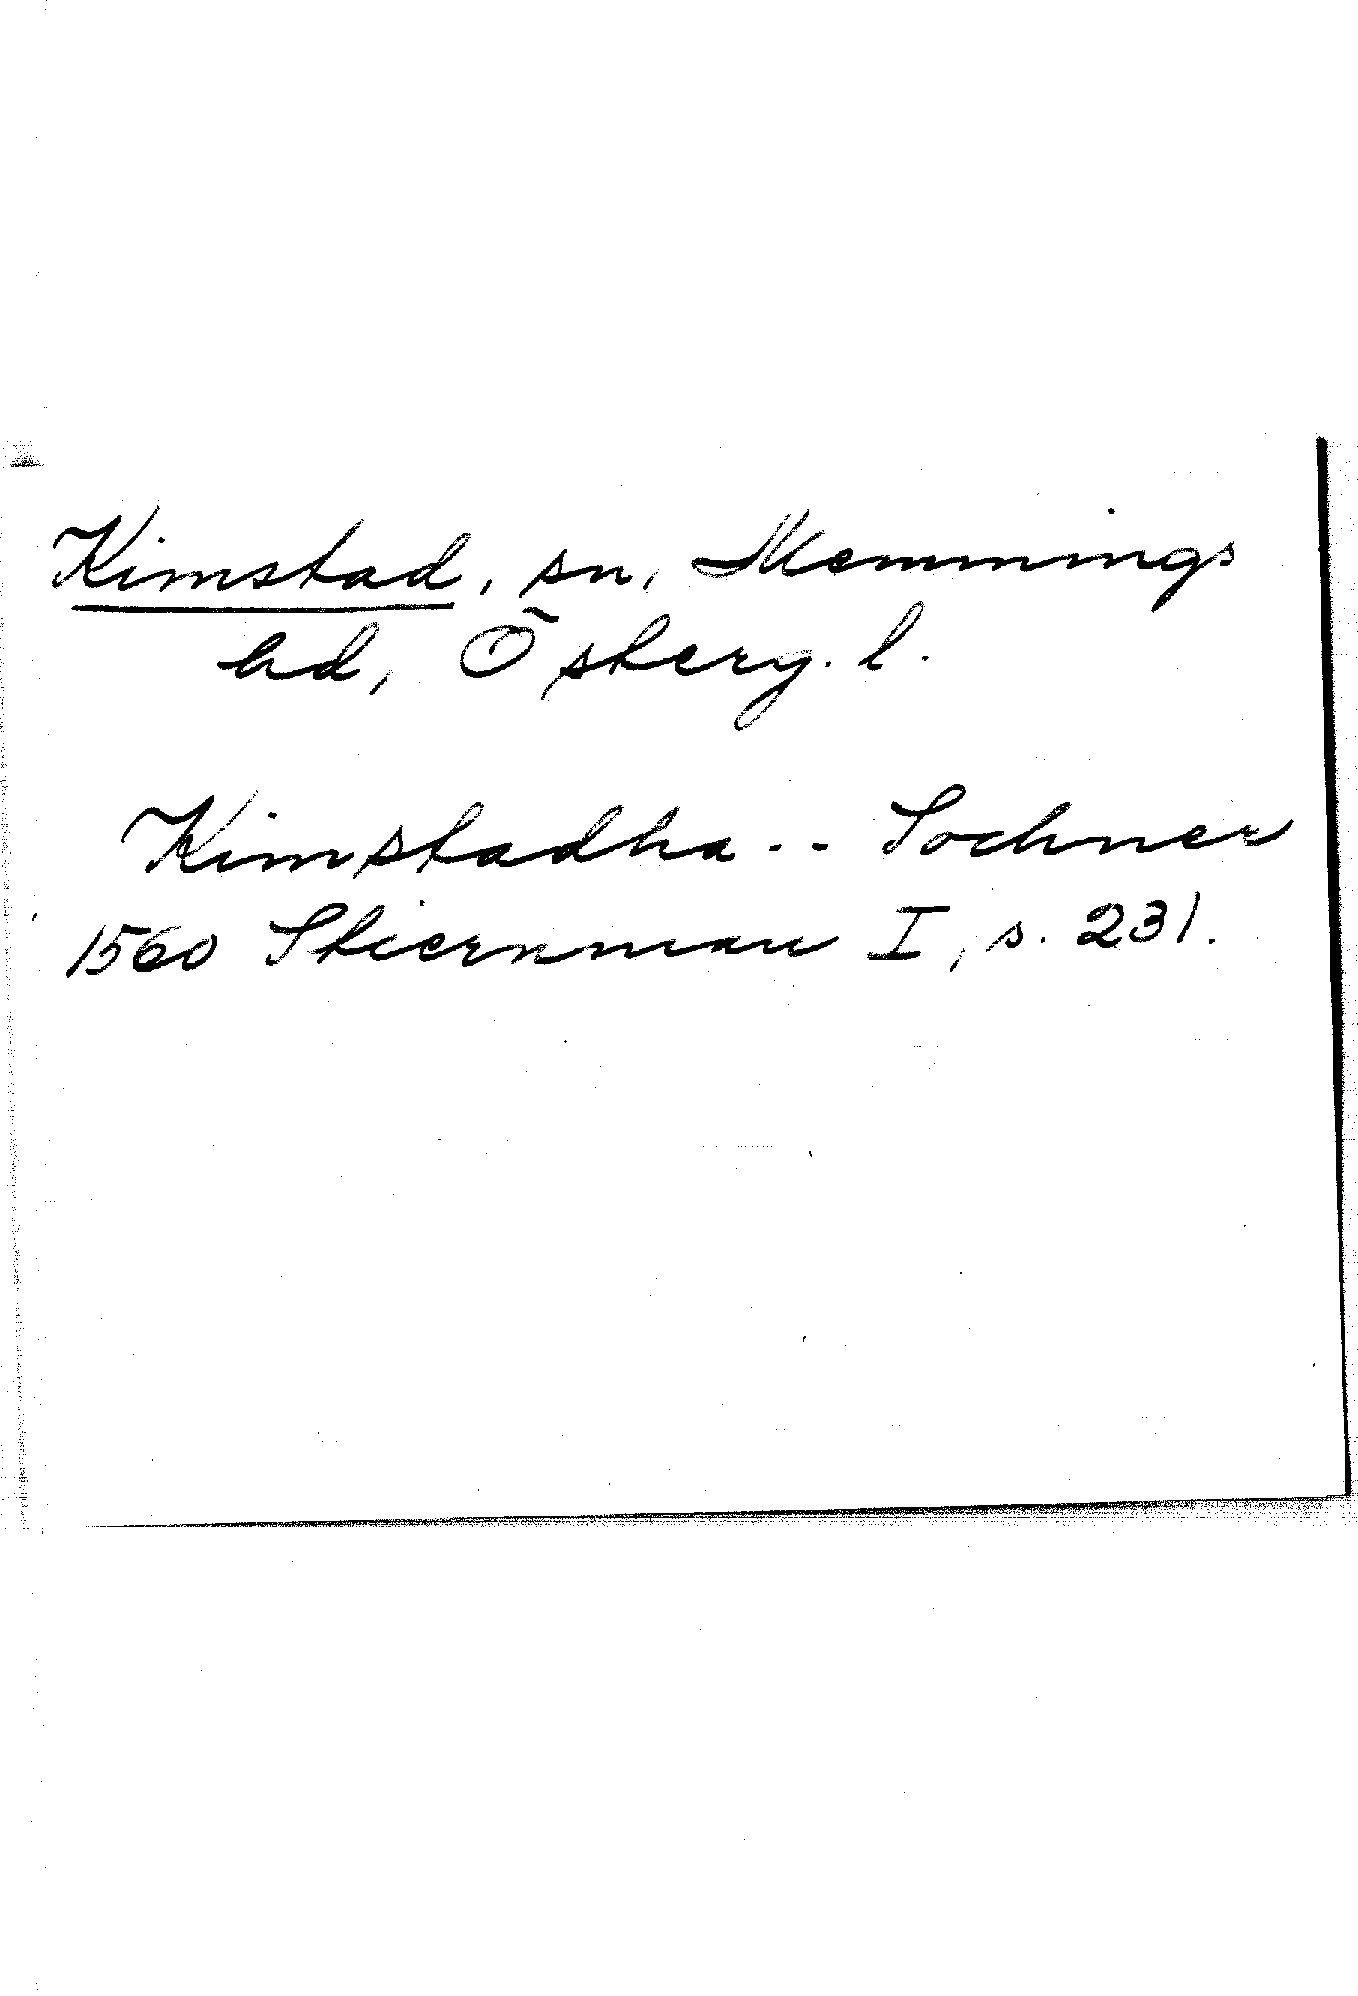 Kimstad, sn, Memmings
hd, Östery. l.
Kimstadha -- Sochner
1560 Stiernman I, s. 231.